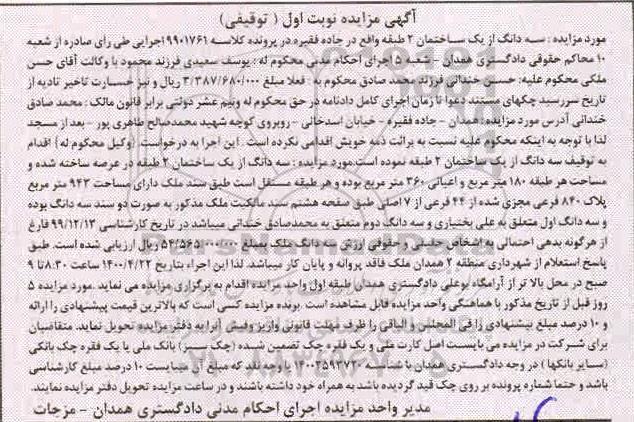 آگهی مزایده نوبت اول ( توقیفی )
مورد مزایده : سه دانگ از یک ساختمان ۲ طبقه واقع در جاده فقیره در پرونده کلاسه ۱۹۹۰۱۷۶۱جرایی طی رای صادره از شعبه
۱۰ محاکم حقوقی دادگستری همدان - شعبه ۵ اجرای احکام مدنی محکوم له : یوسف سعیدی فرزند محمود با وکالت آقای حسن
ملکی محکوم علیه: حسن خندانی فرزند محمد صادق محکوم به : فعلا مبلغ ۳/۳۸۷/۶۸۰/۰۰۰ ریال و نیز خسارت تاخیر تادیه از
تاریخ سررسید چکهای مستند دعوا تا زمان اجرای کامل دادنامه در حق محکوم له ونیم عشر دولتی برابر قانون مالک : محمد صادق
خندانی آدرس مورد مزایده: همدان - جاده فقیره - خیابان اسدخانی - روبروی کوچه شهید محمدصالح طاهری پور - بعد از مسجد
لذا با توجه به اینکه محکوم علیه نسبت به برائت ذمه خویش اقدامی نکرده است . این اجرا به درخواست (وکیل محکوم له) اقدام
به توقیف سه دانگ از یک ساختمان ۲ طبقه نموده است.مورد مزایده : سه دانگ از یک ساختمان ۲ طبقه در عرصه ساخته شده و
مساحت هر طبقه ۱۸۰ متر مربع و اعیانی ۳۶۰ متر مربع بوده و هر طبقه مستقل است طبق سند ملک دارای مساحت ۹۴۳ متر مربع
پلاک ۸۴۰ فرعی مجزی شده از ۴۴ فرعی از ۷ اصلی طبق صفحه هشتم سند مالکیت ملک مذکور به صورت دو سند سه دانگ بوده
و سه دانگ اول متعلق به علی بختیاری و سه دانگ دوم متعلق به محمدصادق خندانی میباشد در تاریخ کارشناسی ۹۹/۱۲/۱۳ فارغ
از هرگونه بدهی احتمالی به اشخاص حقیقی و حقوقی ارزش سه دانگ ملک بمبلغ ۵۴/۵۶۵/۰۰۰/۰۰۰ ریال ارزیابی شده است. طبق
پاسخ استعلام از شهرداری منطقه ۲ همدان ملک فاقد پروانه و پایان کار میباشد. لذا این اجراء بتاریخ ۱۴۰۰/۴/۲۲ ساعت ۸:۳۰ تا ۹
صبح در محل بالا تر از آرامگاه بوعلی دادگستری همدان طبقه اول واحد مزایده اقدام به برگزاری مزایده می نماید .مورد مزایده ۵
روز قبل از تاریخ مذکور با هماهنگی واحد مزایده قابل مشاهده است. برنده مزایده کسی است که بالاترین قیمت پیشنهادی را ارائه
و ۱۰ درصد مبلغ پیشنهادی را فی المجلس و الباقی را ظرف مهلت قانونی واریز وفیش آنرا به دفتر مزایده تحویل نماید. متقاضیان
برای شرکت در مزایده می بایست اصل کارت ملی و یک فقره چک تضمین شده (چک سبز) بانک ملی یا یک فقره چک بانکی
(سایر بانکها ) در وجه دادگستری همدان با شناسه ۱۴۰۰۲۵۹۳۷۲۰ با وجه نقد که مبلغ آن میبایست ۱۰ درصد مبلغ کارشناسی
باشد و حتما شماره پرونده بر روی چک قید گردیده باشد به همراه خود داشته باشند و در ساعت مزایده تحویل دفتر مزایده نمایند.
مدیر واحد مزایده اجرای احکام مدنی دادگستری همدان - مزجات